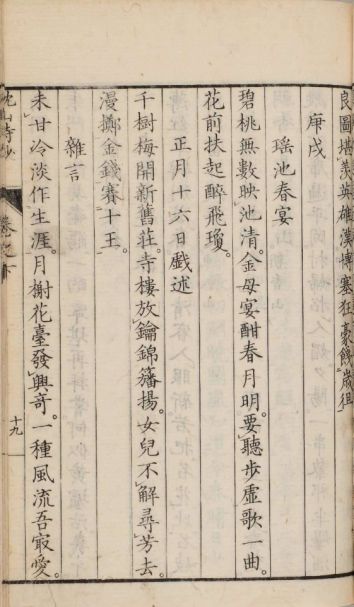 良圖堪羨英雄漢博塞狂豪餞歲徂
庚戌
瑶池春宴
碧桃無數映池清。金母宴酣春月明。要聽步虛歌一曲。
花前扶起醉飛瓊。
正月十六日戲述
千樹梅開新舊莊。寺樓放鑰錦籓揚。女兒不解尋芳去。
漫擲金錢賽十王。
雜言
未甘冷淡作生涯。月榭花臺發興奇。一種風流吾㝡愛。
十九